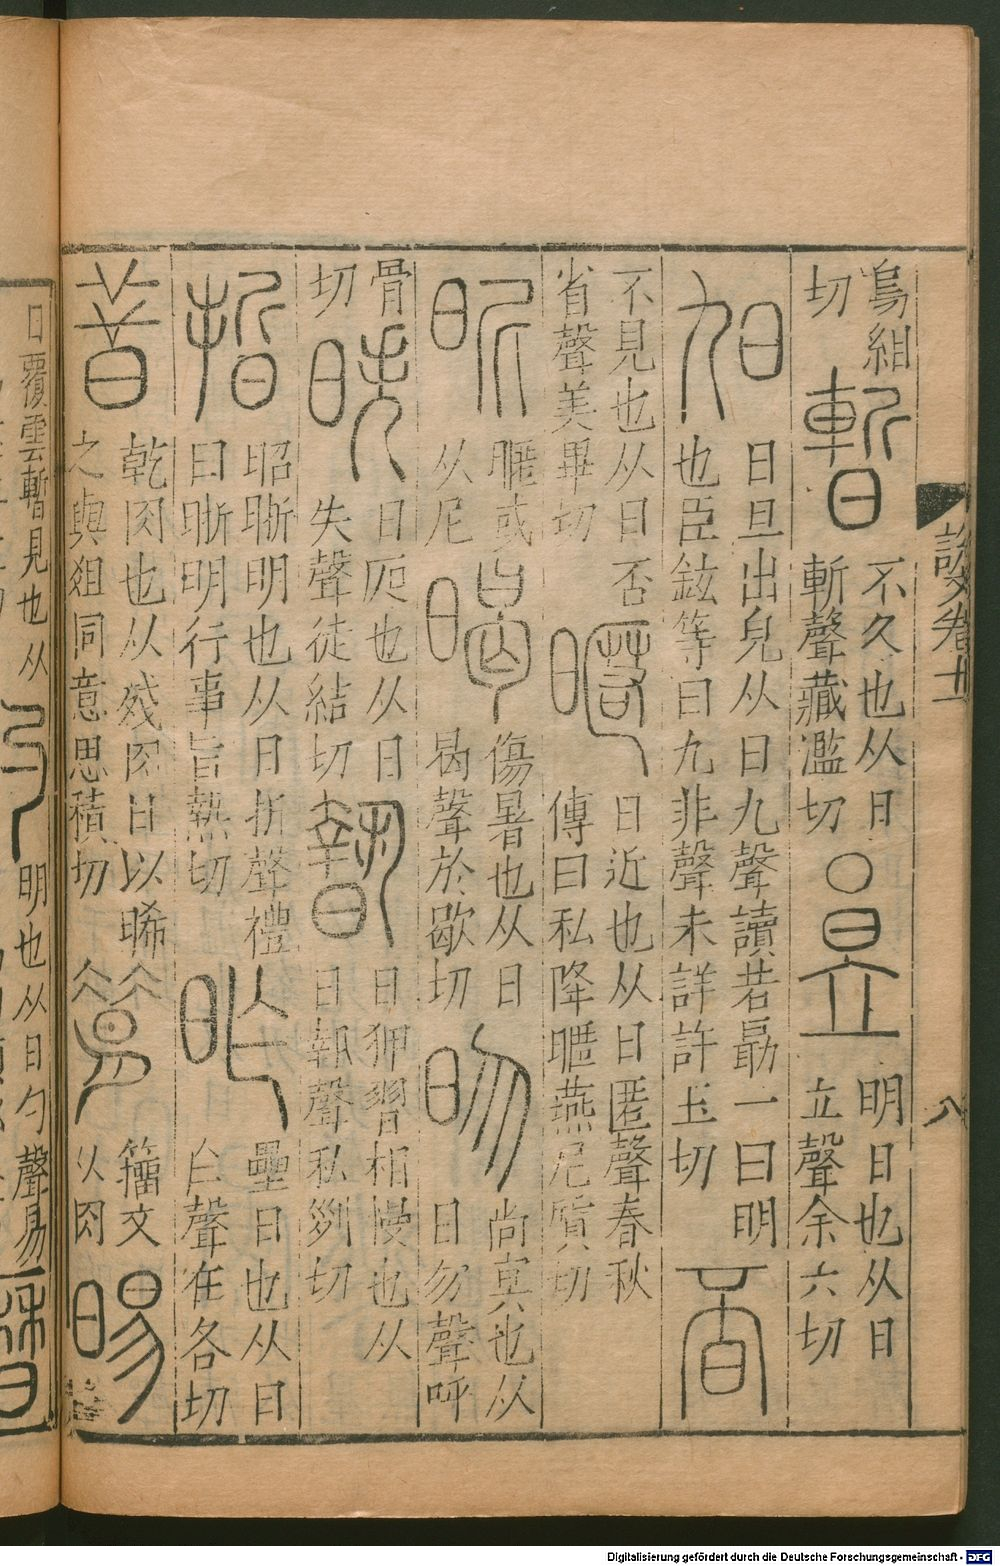 烏紺
切
暫
不久也从日
斬聲藏濫切
○
昱
明日也从日
立聲余六切
旭
日旦出皃从日九聲讀若勖一曰明
也臣鉉等曰九非聲未詳許玉切
否
不見也从日否
省聲美畢切
暱
日近也从日匿聲春秋
傳曰私降暱燕尼質切
昵
暱或
从尼
暍
傷暑也从日
曷聲於歇切
昒
尚冥也从
日勿聲呼
骨
切
昳
日𢈻也从日
失聲徒結切
暬
日狎習相慢也从
日執聲私列切
晢
昭晣明也从日折聲禮
曰晣明行事旨熱切
昨
壘日也从日
乍聲在各切
昔
乾肉也从殘肉日以晞
之與俎同意思積切
籀文
从肉
暘
說文卷十一
八
日覆雲暫見也从
明也从日勺聲易